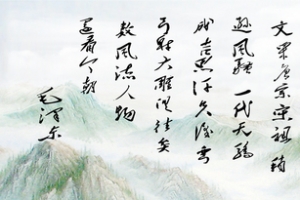 文采唐宗宋祖稍
逊风骚一代天骄
成吉思汗只识弯
弓射大雕俱往矣
数风流人物
还看今朝
毛泽东